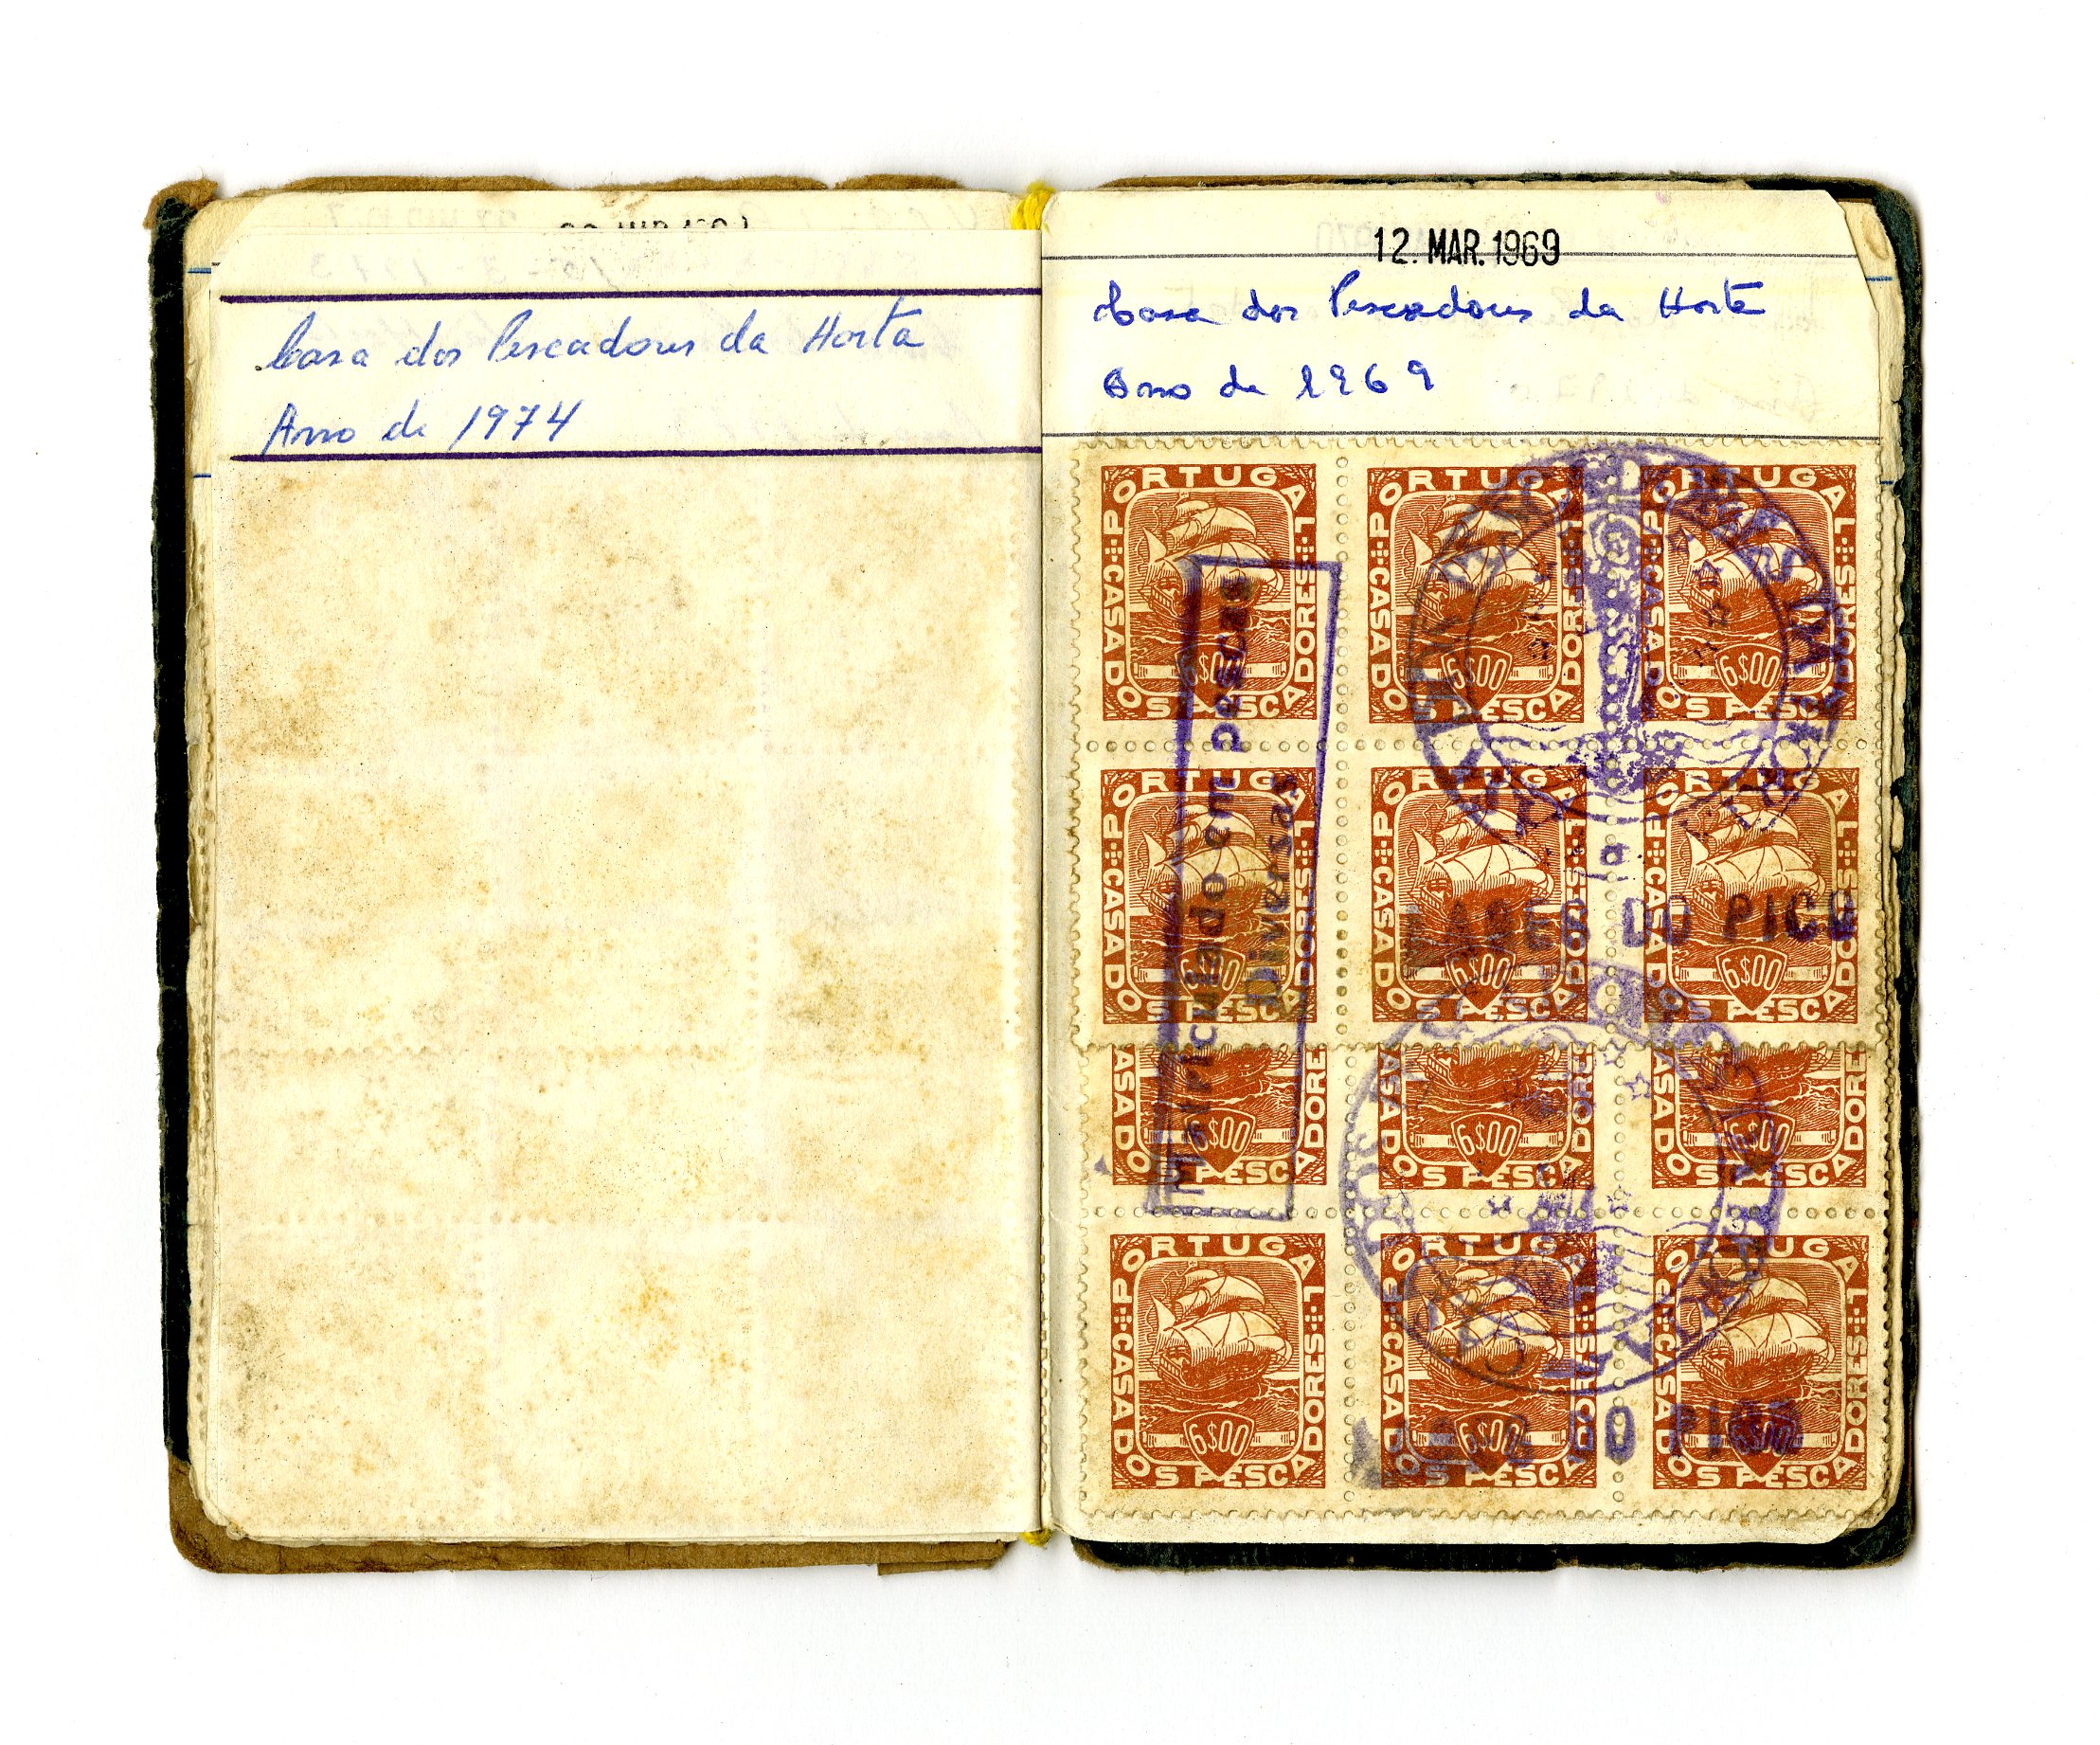 Casa dos Pescadores da Horta
Anno de 1974
12. MAR. 1969
Casa dos Pescadores da Horta
Anno de 1969
PORTUGAL CASA DOS PESCADORES 6$00
PORTUGAL CASA DOS PESCADORES 6$00
PORTUGAL CASA DOS PESCADORES 6$00
PORTUGAL CASA DOS PESCADORES 6$00
PORTUGAL CASA DOS PESCADORES 6$00
PORTUGAL CASA DOS PESCADORES 6$00
ASA DOS PESCADORE 6$00
ASA DOS PESCADORES 6$00
ASA DOS PESCADORE 6$00
PORTUGAL CASA DOS PESCADORES 6$00
PORTUGAL CASA DOS PESCADORES 6$00
PORTUGAL CASA DOS PESCADORES 6$00
Matriculado em pescas
Diversas
LAGES DO PICO
DO PICO